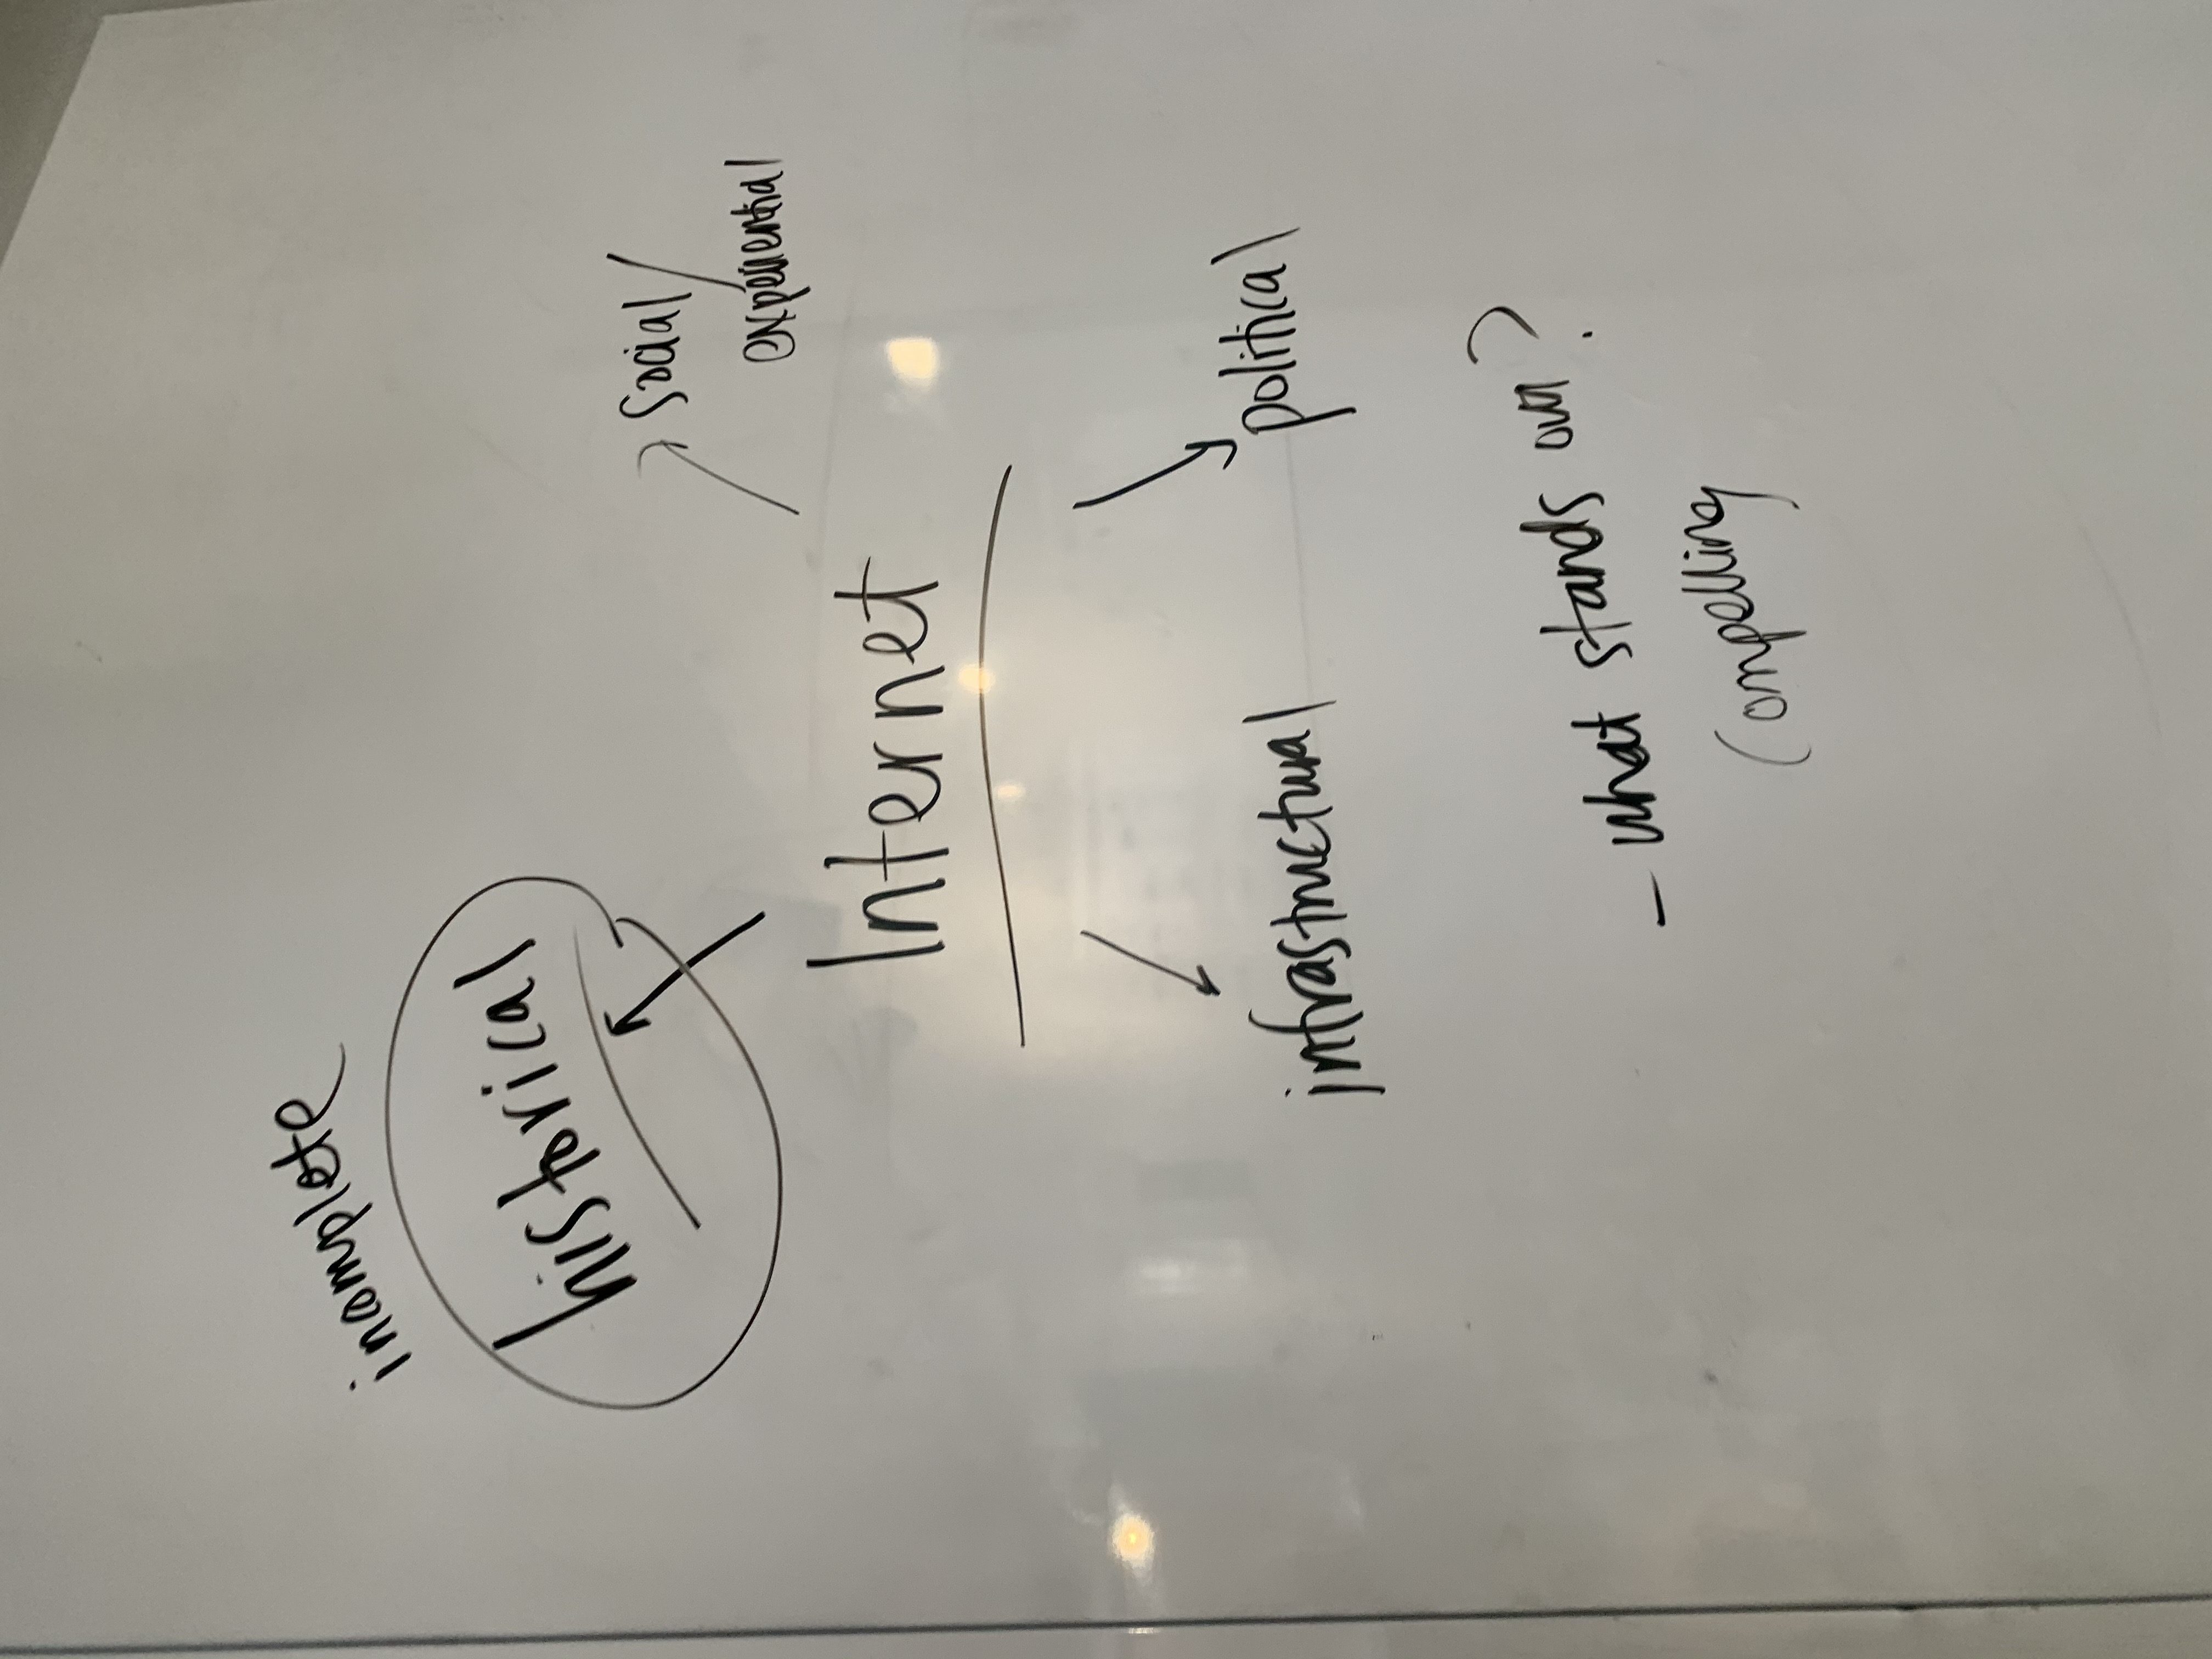 incomplete
historical
social/
experiential
Internet
infrastructural
political
- what stands out?
compelling